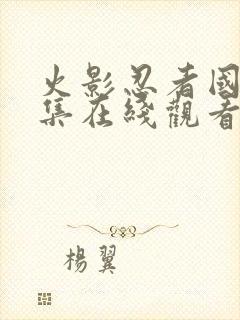 火影忍者國
集在綫觀看
楊翼